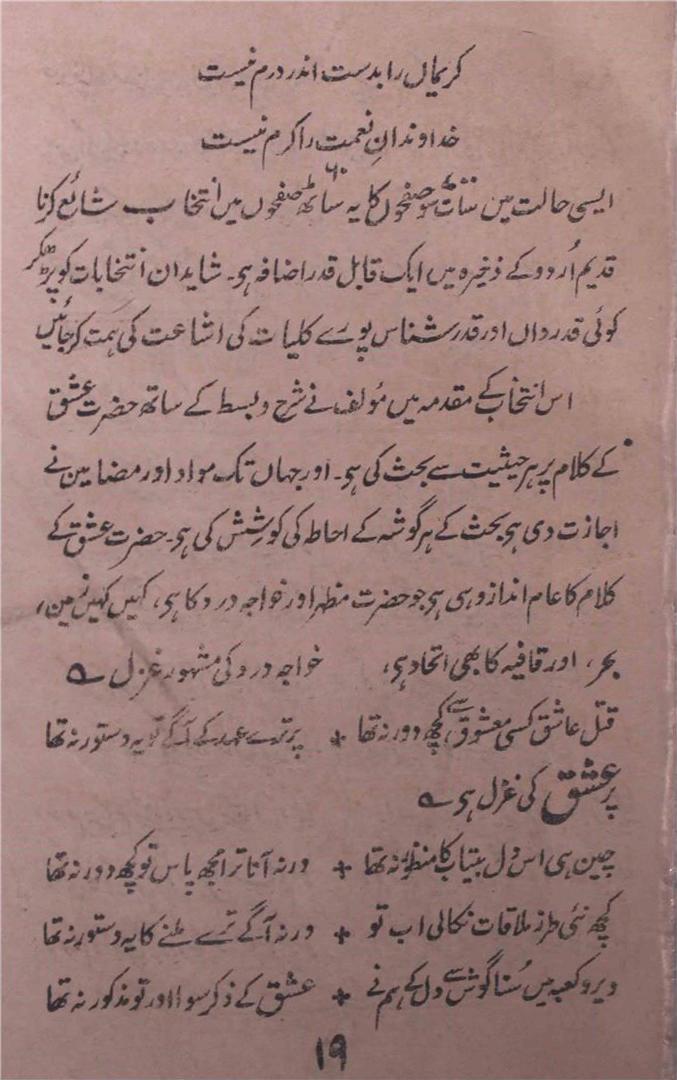 کریماں را بدست اندر درم نیست
خداوندانِ نعمت را کرم نیست
ایسی حالت میں سات سو صفحوں کا یہ ساٹھ ۶۰ صفحوں میں انتخاب شائع کرنا
قدیم اُردو کے ذخیرہ میں ایک قابل قدر اضافہ ہی۔ شاید ان انتخابات کو پڑھکر
کوئی قدرداں اور قدرشناس پورے کلیات کی اشاعت کی ہمت کر جائیں
اس انتخاب کے مقدمہ میں مؤلف نے شرح و بسط کے ساتھ حضرت عشق
کے کلام پر ہر حیثیت سے بحث کی ہی۔ اور جہاں تک مواد اور مضامین نے
اجازت دی ہی بحث کے ہر گوشہ کے احاطہ کی کوشش کی ہی۔ حضرت عشق کے
کلام کا عام انداز وہی ہی جو حضرت مظہر اور خواجہ درد کا ہی، کہیں کہیں زمین،
بحر، اور قافیہ کا بھی اتحاد ہی، خواجہ درد کی مشہور غزل ہے
قتل عاشق کسی معشوق سے کچھ دور نہ تھا + پر ترے عہد کے آگے تو یہ دستور نہ تھا
پر عشق کی غزل ہی ہے
چین ہی اس دل بیتاب کا منظور نہ تھا + ورنہ آنا ترا مجھ پاس تو کچھ دور نہ تھا
کچھ نئی طرز ملاقات نکالی اب تو + ورنہ آگے ترے ملنے کا یہ دستور نہ تھا
دیر و کعبہ میں سُنا گوش سے دل کے ہم نے + عشق کے ذکر سوا اور تو مذکور نہ تھا
۱۹